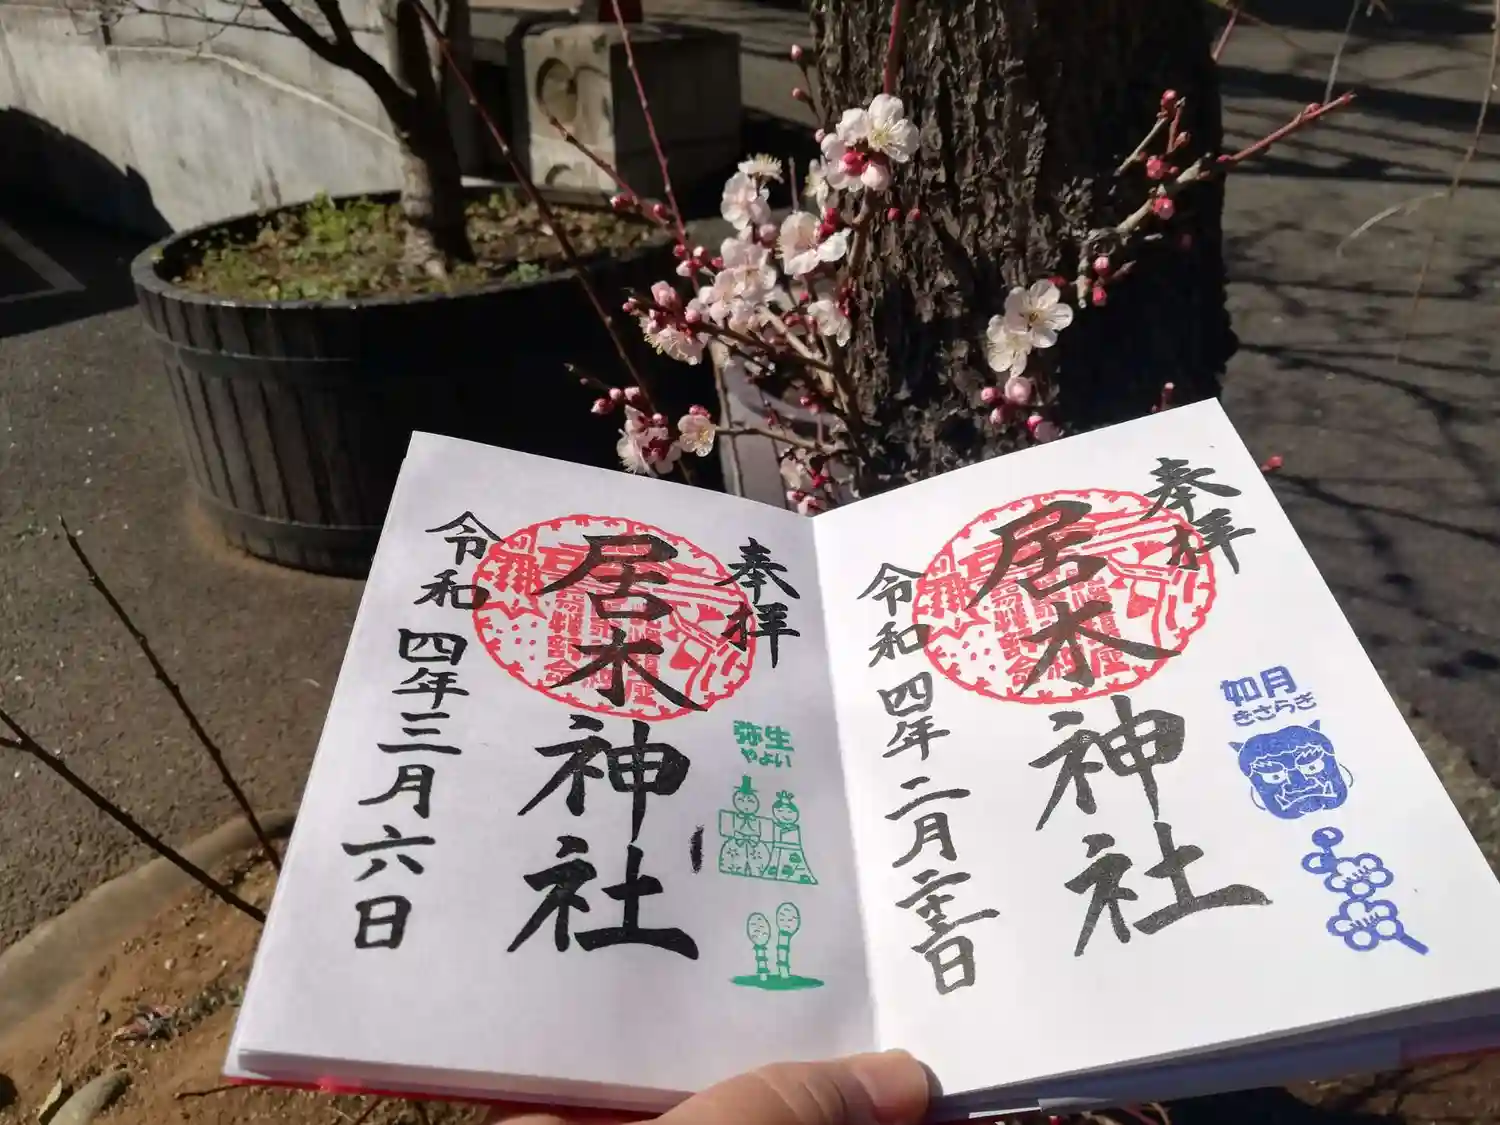 奉拝
居木神社
令和四年二月二十二日
如月
きさらぎ
奉拝
居木神社
令和四年三月六日
弥生
やよい